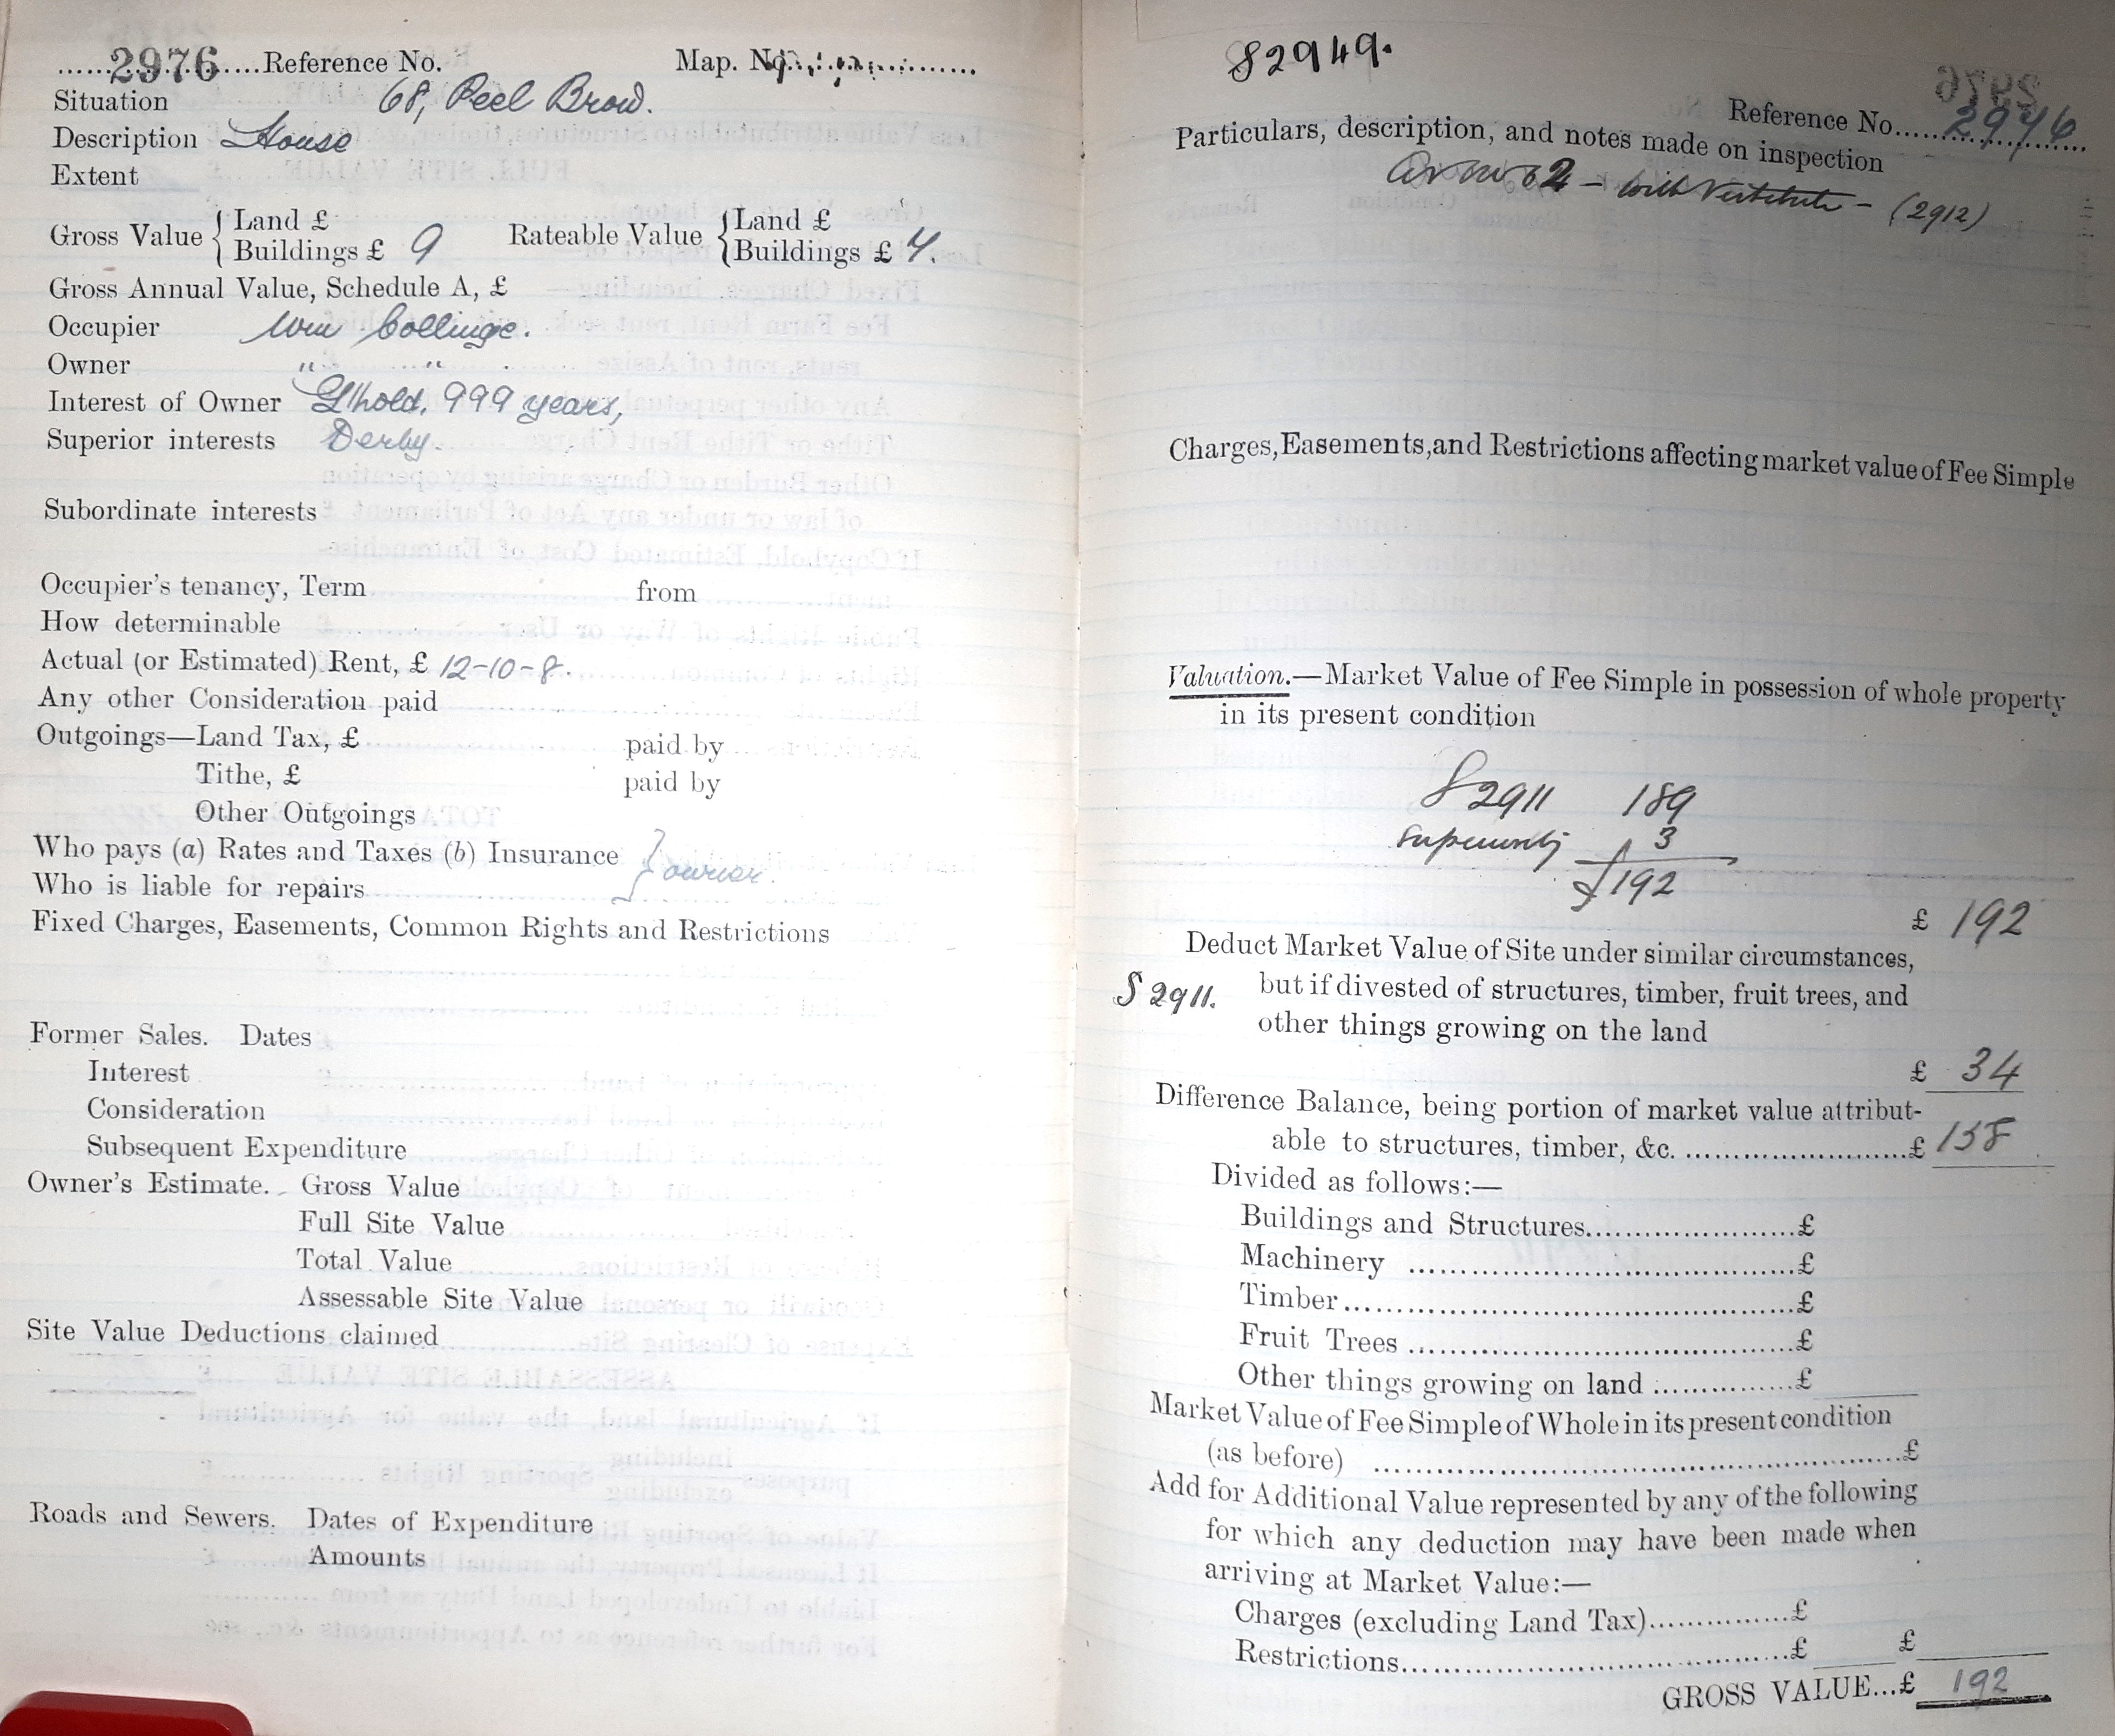 2976 Reference No. Map. No.
Situation 68, Peel Brow.
Description House
Extent
Gross Value { Land £
Buildings £ 9
Rateable Value { Land £
Buildings £ 7.
Gross Annual Value, Schedule A, £
Occupier Wm Collinge.
Owner " "
Interest of Owner L'hold, 999 years,
Superior interests Derby.
Subordinate interests
Occupier's tenancy, Term from
How determinable
Actual (or Estimated) Rent, £ 12-10-8.
Any other Consideration paid
Outgoings—Land Tax, £ paid by
Tithe, £ paid by
Other Outgoings
Who pays (a) Rates and Taxes (b) Insurance } owner.
Who is liable for repairs
Fixed Charges, Easements, Common Rights and Restrictions
Former Sales. Dates
Interest
Consideration
Subsequent Expenditure
Owner's Estimate. Gross Value
Full Site Value
Total Value
Assessable Site Value
Site Value Deductions claimed
Roads and Sewers. Dates of Expenditure
Amounts
S2949.
Reference No. 2976
Particulars, description, and notes made on inspection
As no 62 - with Vestibule - (2912)
Charges, Easements, and Restrictions affecting market value of Fee Simple
Valuation.—Market Value of Fee Simple in possession of whole property
in its present condition
S2911 189
superiority 3
£192
£ 192
Deduct Market Value of Site under similar circumstances,
S2911. but if divested of structures, timber, fruit trees, and
other things growing on the land
£ 34
Difference Balance, being portion of market value attribut-
able to structures, timber, &c. £ 158
Divided as follows:—
Buildings and Structures £
Machinery £
Timber £
Fruit Trees £
Other things growing on land £
Market Value of Fee Simple of Whole in its present condition
(as before) £
Add for Additional Value represented by any of the following
for which any deduction may have been made when
arriving at Market Value:—
Charges (excluding Land Tax) £
Restrictions £ £
GROSS VALUE...£ 192